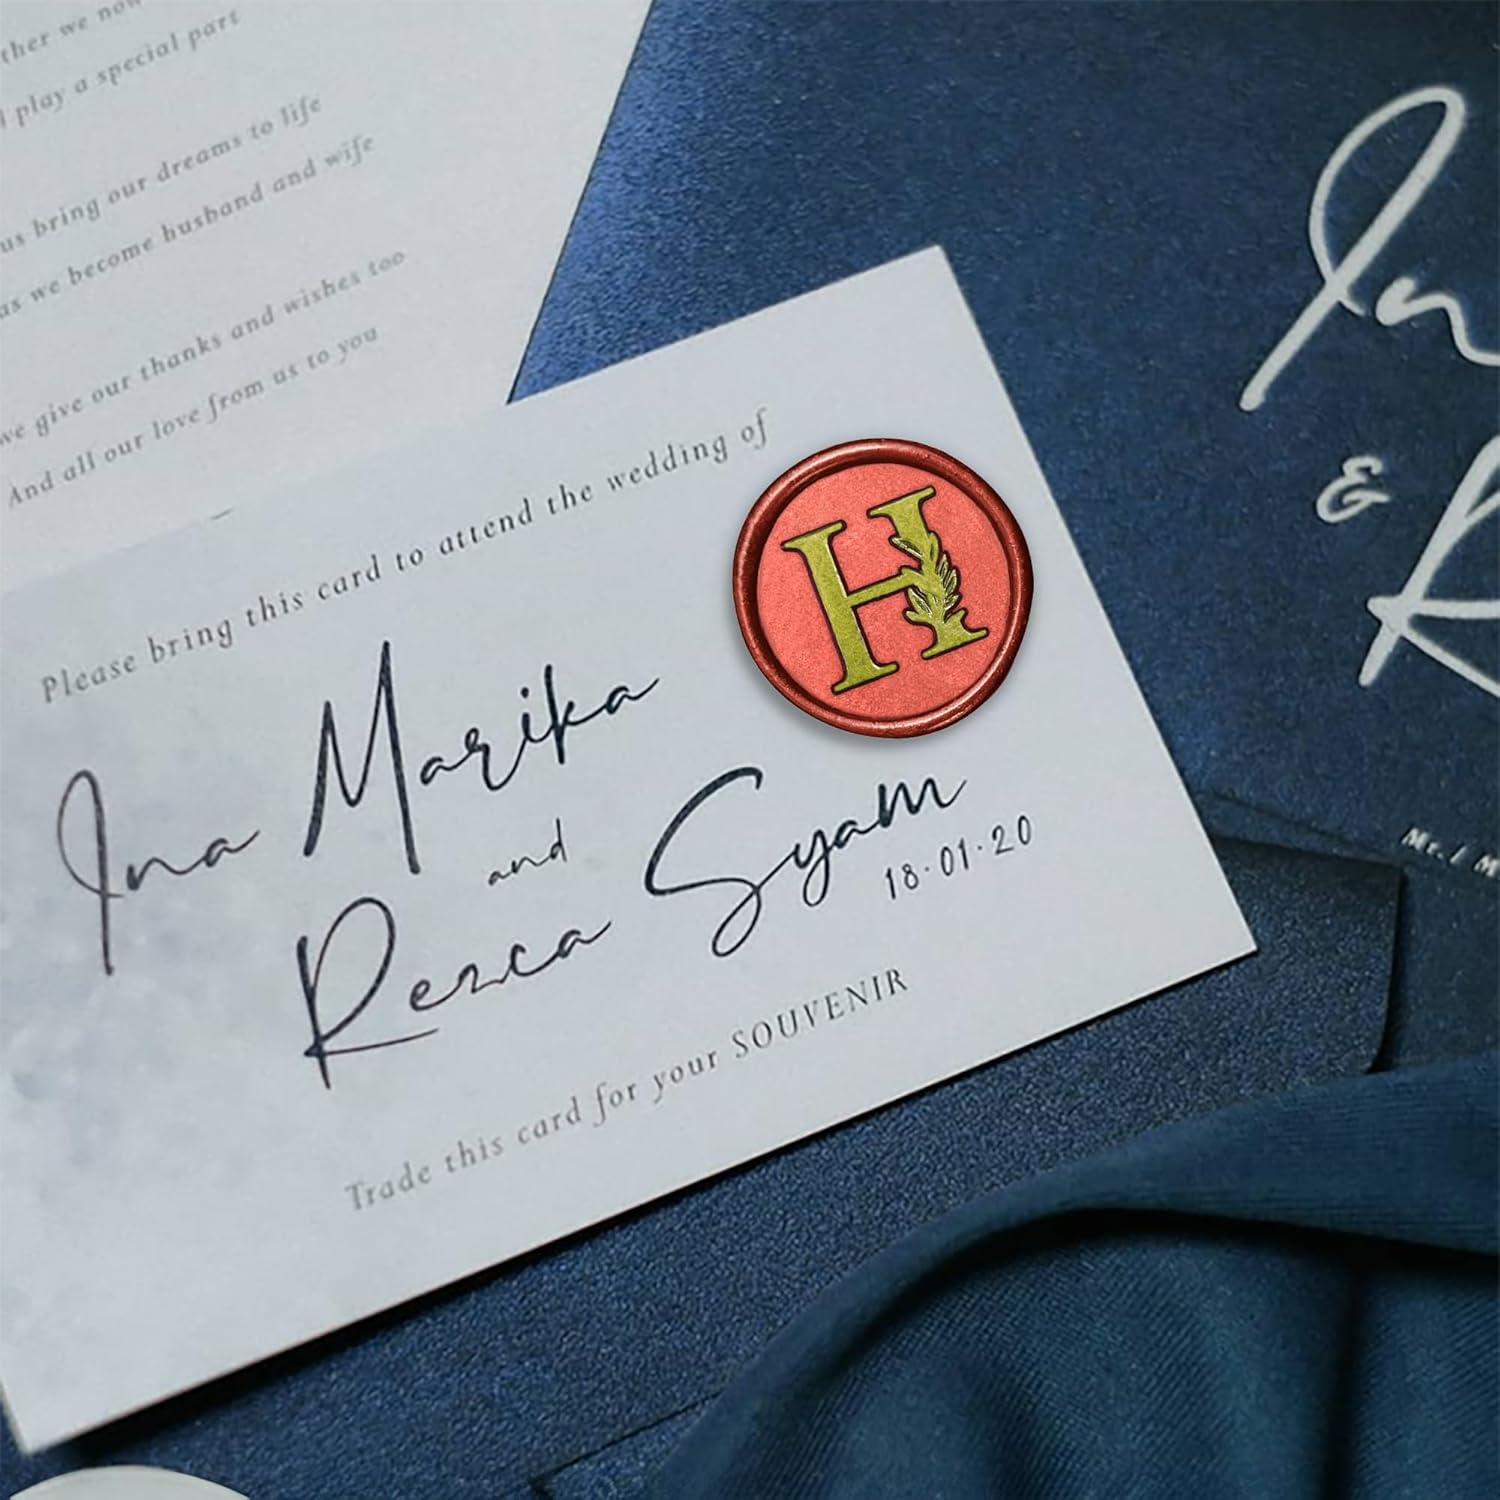 ther we now
play a special part
us bring our dreams to life
as we become husband and wife
we give our thanks and wishes too
And all our love from us to you
Please bring this card to attend the wedding of
H
Ina Marika
and
Rezca Syam
18·01·20
Trade this card for your SOUVENIR
In
&
R
Mr. / M